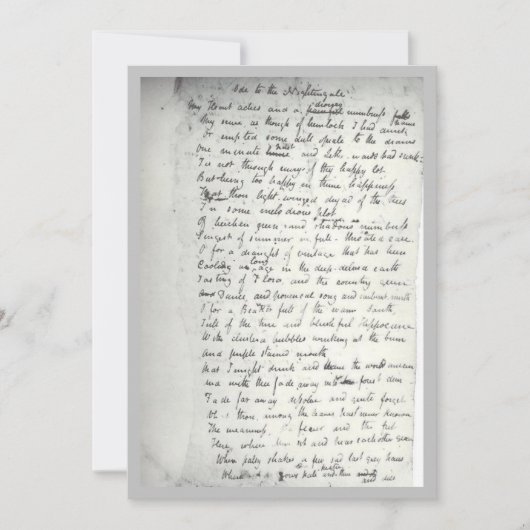 Ode to the Nightingale
My Heart aches and a drowsy painful numbness falls
My sense as though of hemlock I had drunk
Or emptied some dull opiate to the drains
One minute past and Lethe wards had sunk
Tis not through envy of thy happy lot
But being too happy in thine happiness
That thou light winged dryad of the trees
In some melodious plot
Of beechen green and shadows numberless
Singest of summer in full-throated ease
O for a draught of vintage that has been
Cooling an age in the deep-delved earth
Tasting of Flora, and the country green
And Dance, and provencal song and sunburnt mirth
O for a Beaker full of the warm South
Full of the true and blushful Hippocrene
With cluster'd bubbles winking at the brim
And purple stained mouth
That I might drink and leave the world unseen
And with thee fade away into forest dim
Fade far away dissolve and quite forget
What thou among the leaves hast never known
The weariness, the fever and the fret
Here, where Men sit and hear each other groan
Where palsy shakes a few sad last grey hairs
Where grows pale and thin and dies